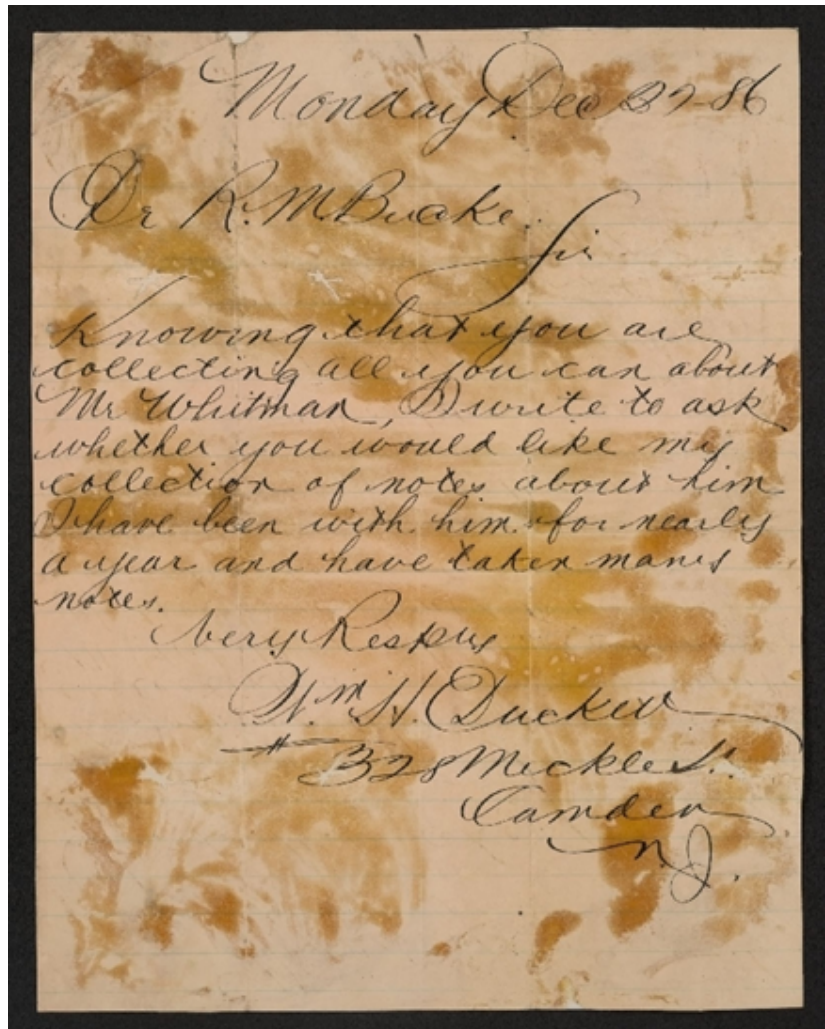 Monday Dec 27-86
Dr R. M Bucke.
Sir
Knowing that you are
collecting all you can about
Mr Whitman, I write to ask
whether you would like my
collection of notes about him
I have been with him for nearly
a year and have taken many
notes.
Very Respy
Wm H. Duckett
328 Mickle St.
Camden
N.J.